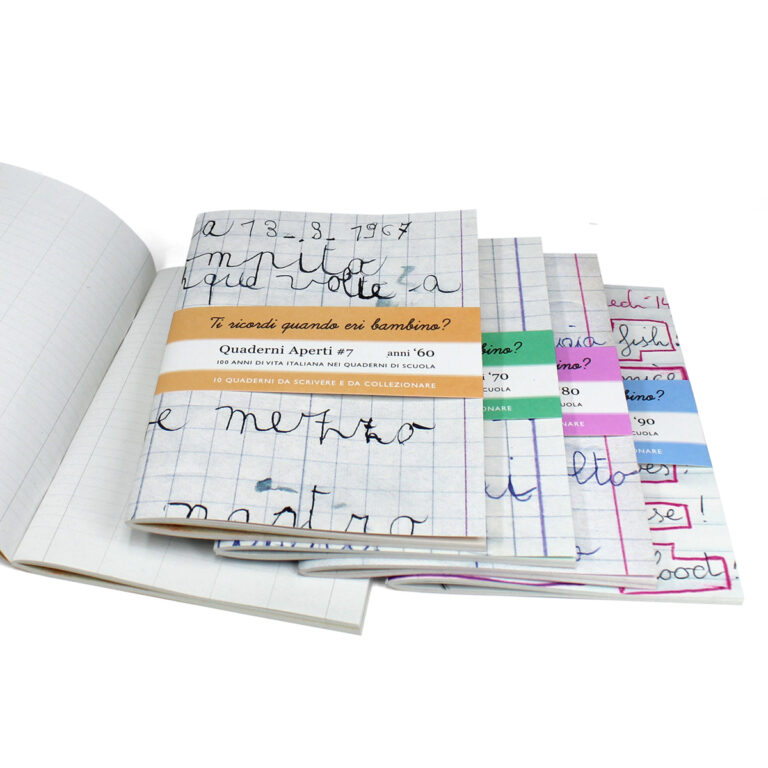 a 13_8_1967
mpito
nque volte a
Ti ricordi quando eri bambino?
Quaderni Aperti #7 anni '60
100 ANNI DI VITA ITALIANA NEI QUADERNI DI SCUOLA
10 QUADERNI DA SCRIVERE E DA COLLEZIONARE
e mezzo
nastro
bino?
i '70
SCUOLA
ONARE
sia
bino?
80
CUOLA
NARE
lto
edì 14
fish!
bino?
'90
CUOLA
NARE
es!
se!
lood!